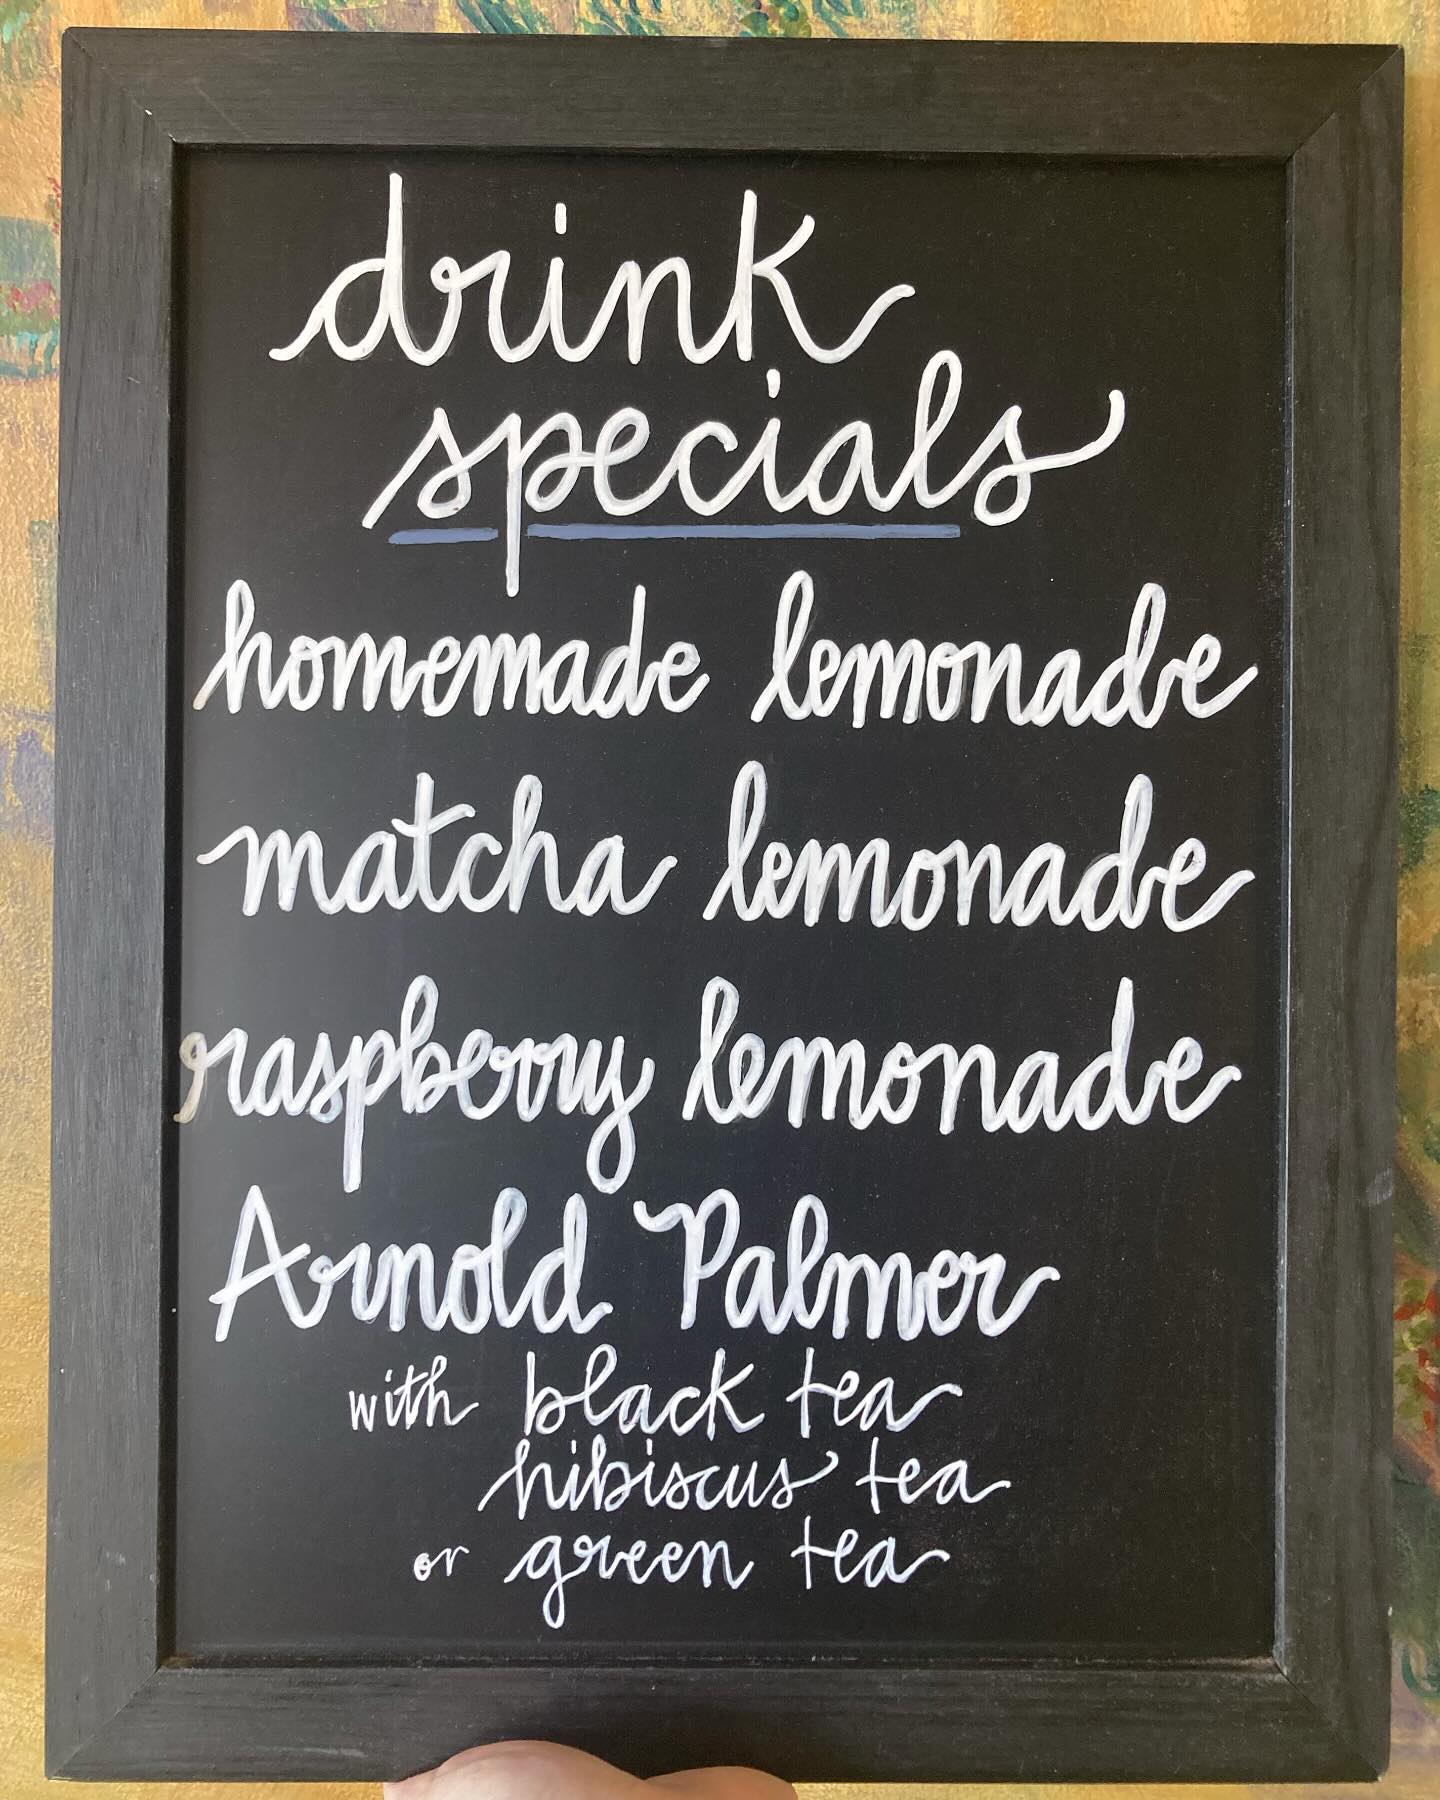 drink
specials
homemade lemonade
matcha lemonade
raspberry lemonade
Arnold Palmer
with black tea
hibiscus tea
or green tea